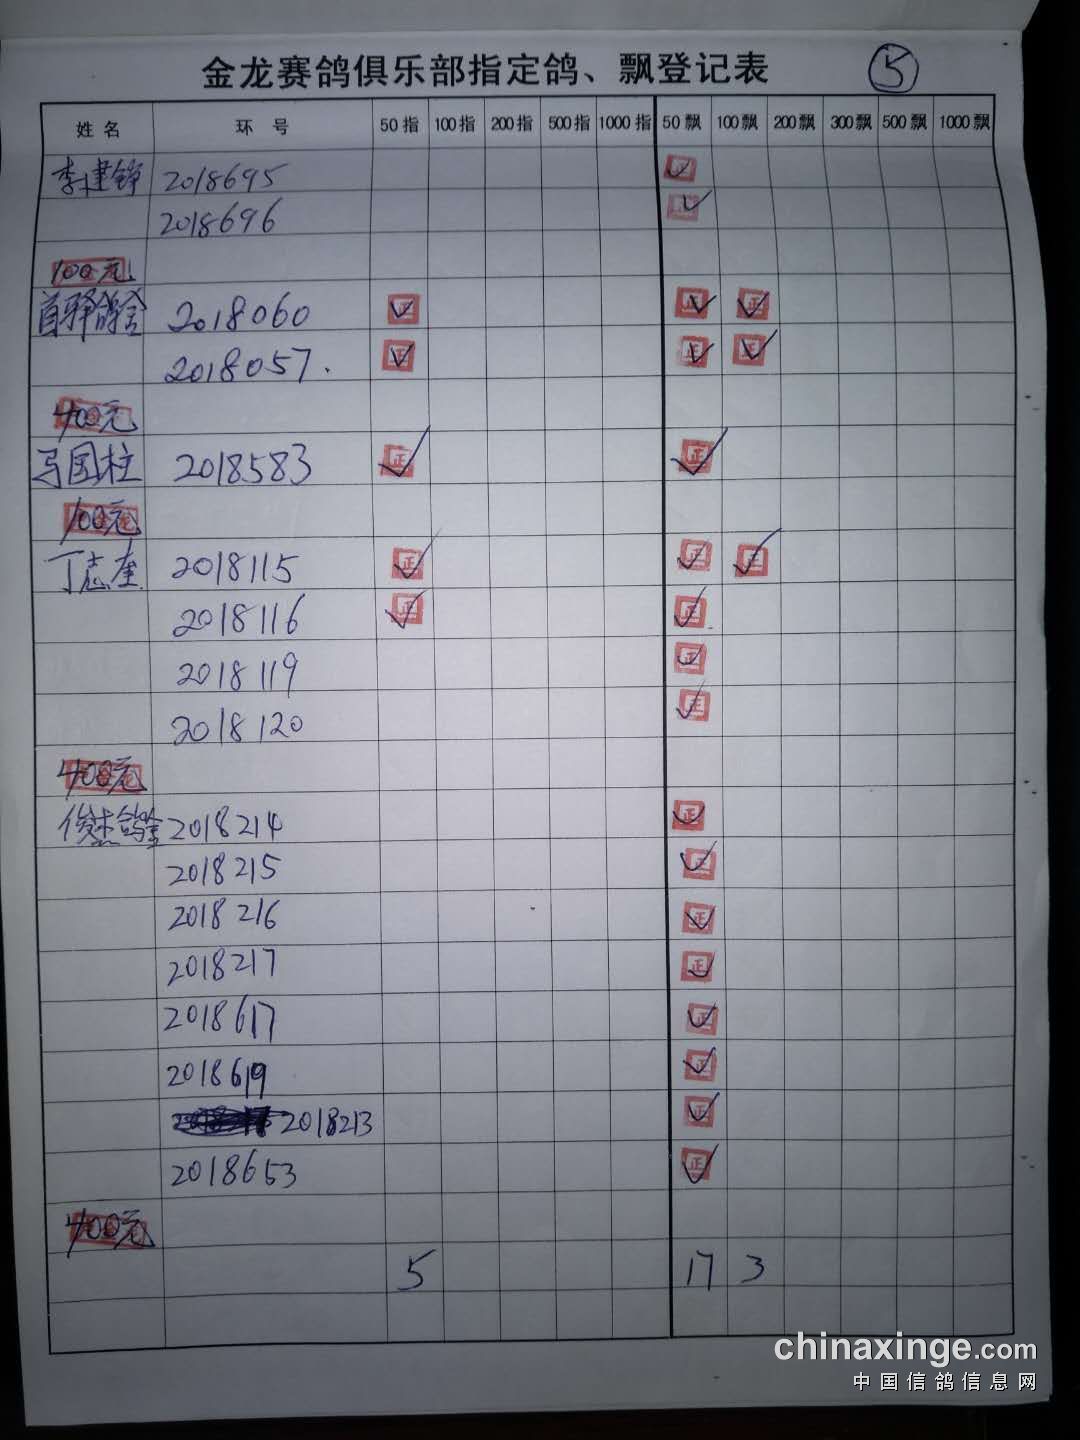 金龙赛鸽俱乐部指定鸽、飘登记表 5
姓名 环号 50指 100指 200指 500指 1000指 50飘 100飘 200飘 300飘 500飘 1000飘
李建铮 2018695 正
2018696 正
100元
首驿鸽舍 2018060 正 正 正
2018057. 正 正 正
400元
马国柱 2018583 正 正
100元
丁志奎 2018115 正 正 正
2018116 正 正
2018119 正
2018120 正
400元
俊杰鸽舍 2018214 正
2018215 正
2018216 正
2018217 正
2018617 正
2018619 正
2018213 正
2018653 正
400元
5 17 3
chinaxinge.com
中国信鸽信息网